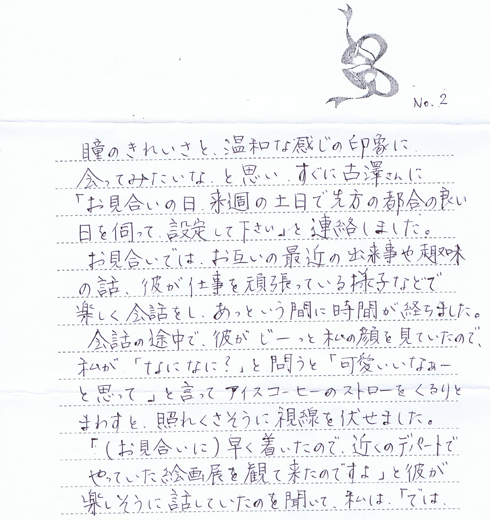 No. 2
瞳のきれいさと、温和な感じの印象に
会ってみたいな、と思い、すぐに古澤さんに
「お見合いの日、来週の土日で先方の都合の良い
日を伺って、設定して下さい」と連絡しました。
お見合いでは、お互いの最近の出来事や趣味
の話、彼が仕事を頑張っている様子などで
楽しく会話をし、あっという間に時間が経ちました。
会話の途中で、彼がじーっと私の顔を見ていたので、
私が「なになに？」と問うと「可愛いいなぁー
と思って」と言ってアイスコーヒーのストローをくるりと
まわすと、照れくさそうに視線を伏せました。
「（お見合いに）早く着いたので、近くのデパートで
やっていた絵画展を観て来たのですよ」と彼が
楽しそうに話していたのを聞いて、私は、「では、